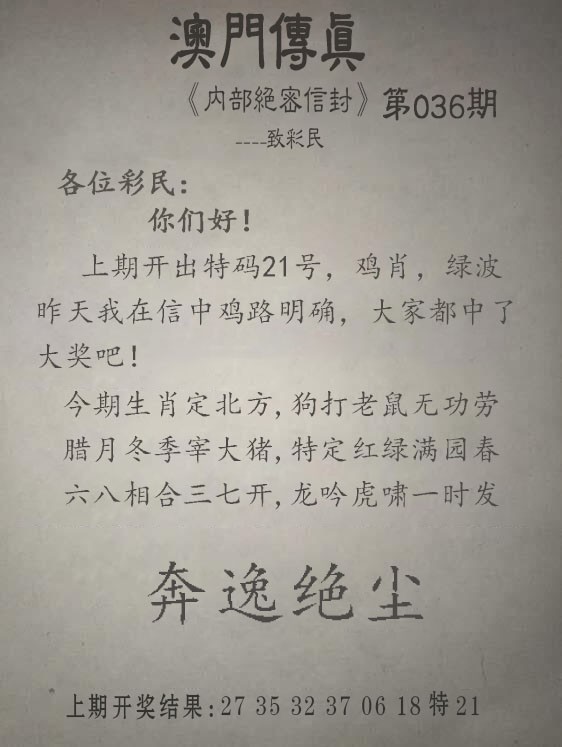 澳門傳眞
《内部絕密信封》第036期
----致彩民
各位彩民：
你们好！
上期开出特码21号，鸡肖，绿波
昨天我在信中鸡路明确，大家都中了
大奖吧！
今期生肖定北方,狗打老鼠无功劳
腊月冬季宰大猪,特定红绿满园春
六八相合三七开,龙吟虎啸一时发
奔逸绝尘
上期开奖结果:27 35 32 37 06 18特21